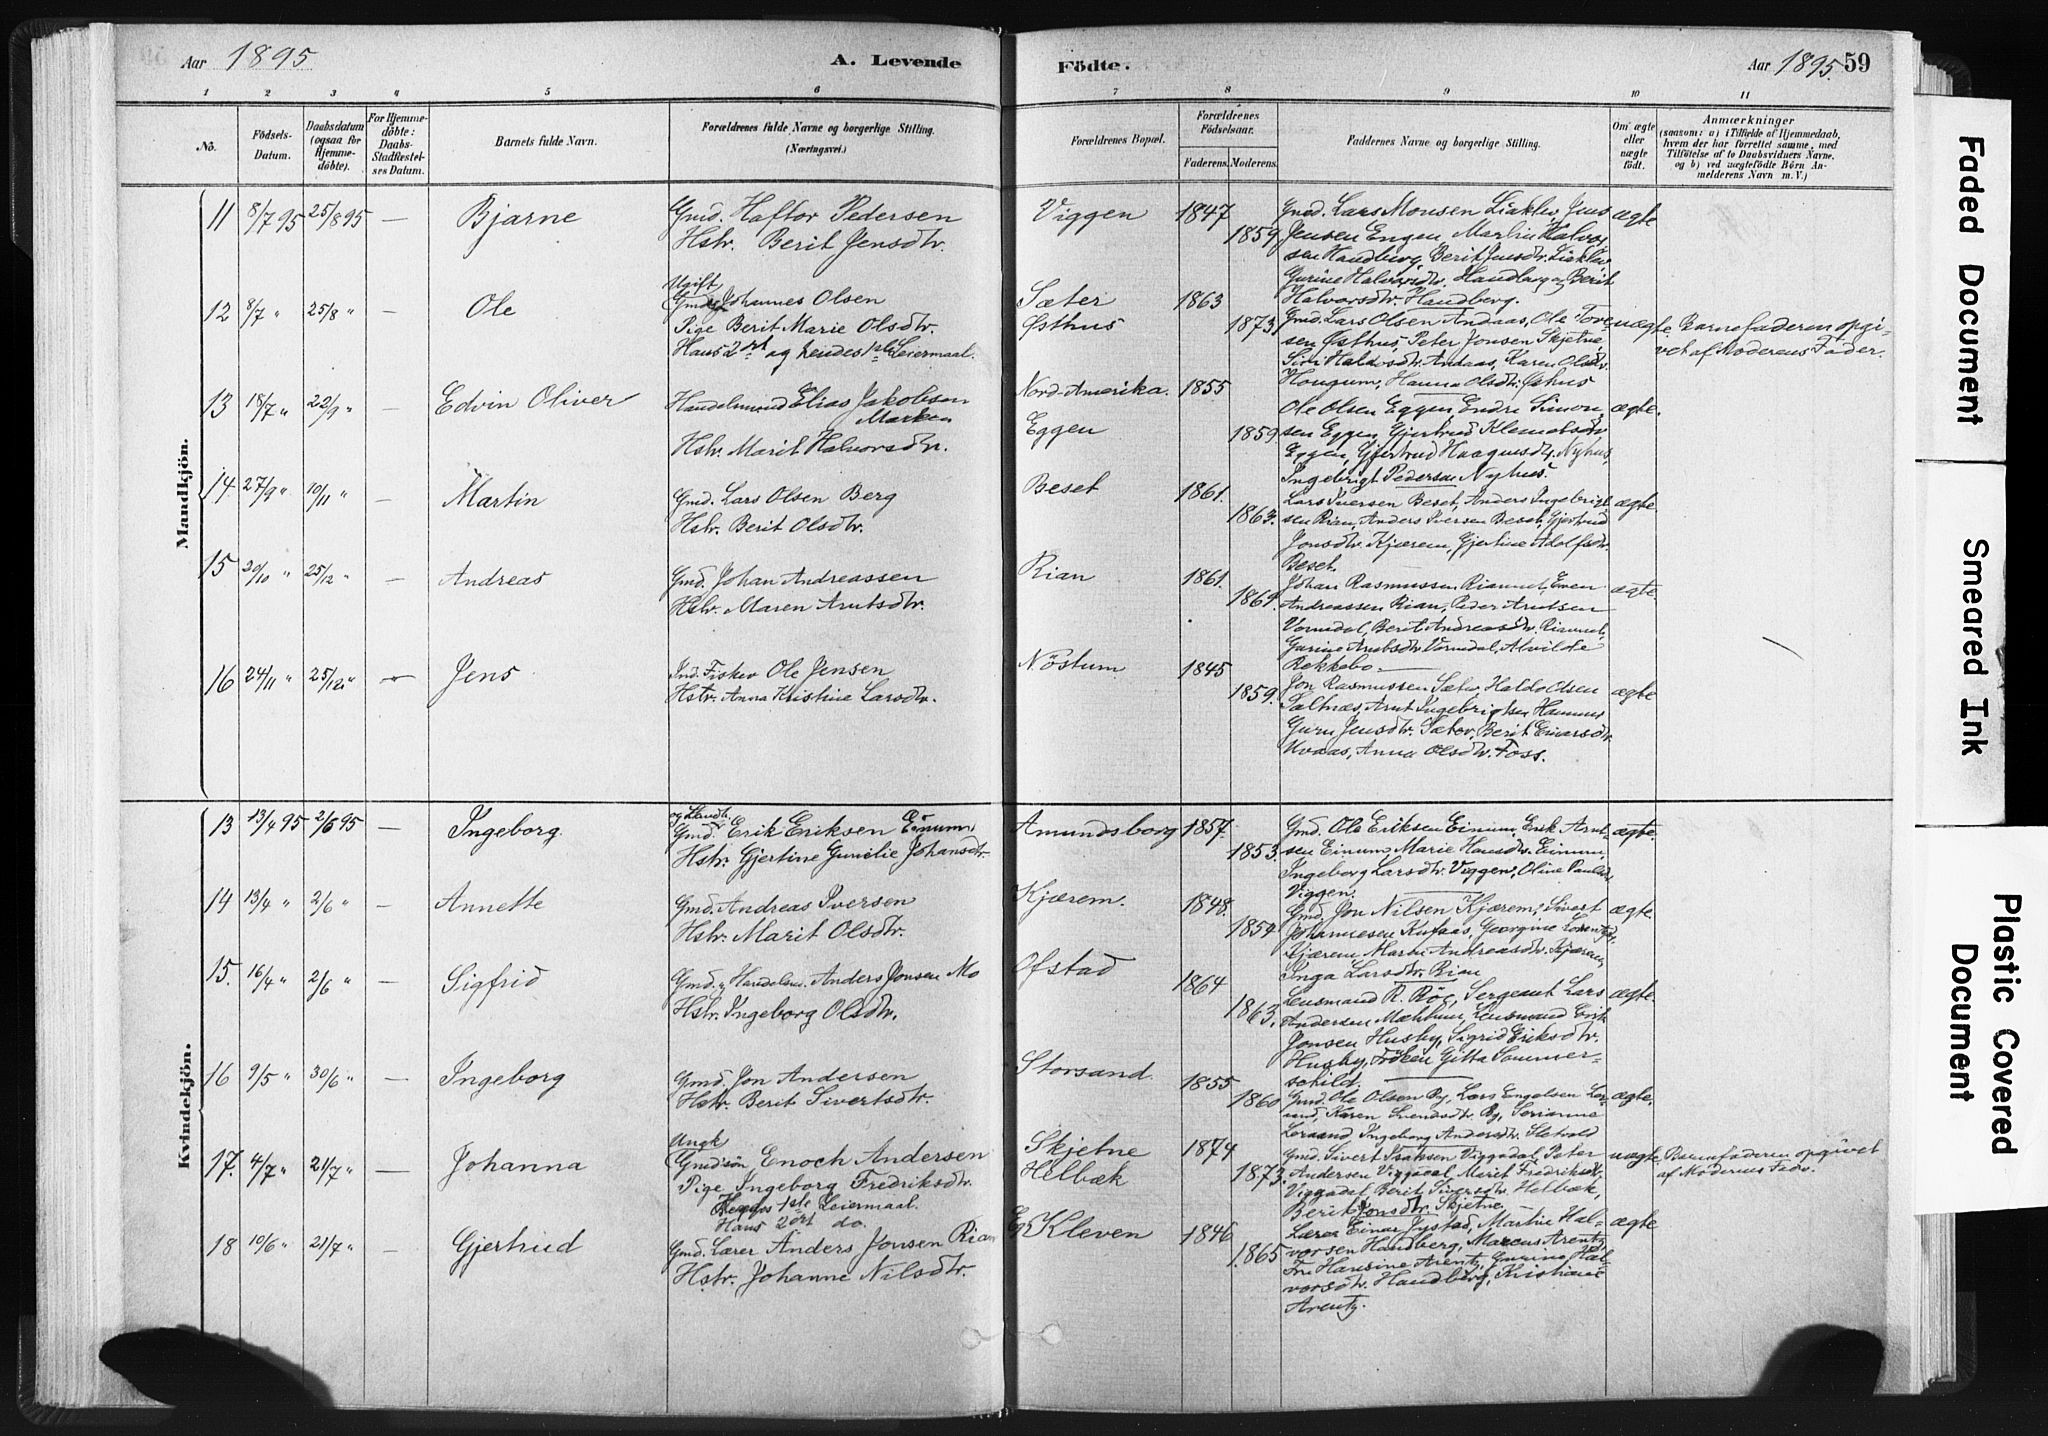 Aar 1895
A. Levende
Födte.
Aar 1895. 59
1 2 3 4 5 6 7 8 9 10 11
No.
Födsels-
Datum.
Daabsdatum
(ogsaa for
Hjemme-
döbte).
For Hjemme-
döbte:
Daabs-
Stadfæstel-
ses Datum.
Barnets fulde Navn.
Forældrenes fulde Navne og borgerlige Stilling.
(Næringsvei.)
Forældrenes Bopæl.
Forældrenes
Födselsaar.
Faderens. Moderens.
Faddernes Navne og borgerlige Stilling.
Om ægte
eller
uægte
födt.
Anmærkninger
(saasom: a) i Tilfælde af Hjemmedaab,
hvem der har forrettet samme, med
Tilföielse af to Daabsvidners Navne,
og b) ved uægtefödte Börn An-
melderens Navn m. V.)
Mandkjön.
11 8/7 95 25/8 95 — Bjarne
Gmd. Haftor Pedersen
Hstr. Berit Jensdtr.
Viggen 1847
1859.
Gmd. Lars Monsen Liaklev, Jens
Jensen Engen, Martin Halvor
sen Handberg, Berit Jensdtr. Liaklev
Gurine Halvorsdtr. Handberg, Berit
Halvorsdtr. Handberg.
ægte
12 8/7 " 25/8 " — Ole
Ugift
Johannes Olsen
Pige Berit Marie Olsdtr.
Hans 2det og hendes 1ste Leiermaal.
Sæter 1863
Østhus 1873
Gmd. Lars Olsen Andaas, Ole Tore
sen Østhus, Peter Jonsen Skjetne,
Siri Haldosdtr. Andaas, Karen Olsdtr.
Hougum, Hanna Olsdtr. Østhus
uægte. Barnefaderen opgi-
vet af Moderens Fader.
13 18/7 " 22/9 " — Edvin Oliver
Handelsmand Elias Jakobsen
Marken
Hstr. Marit Halvorsdtr.
Nord-Amerika. 1855
Eggen 1859.
Ole Olsen Eggen, Endre Simon-
sen Eggen, Gjertrud Klemetsdtr.
Eggen, Gjertrud Haagensdtr. Nyhus,
Ingebrigt Pedersen Nyhus.
ægte.
14 27/9 " 10/11 " — Martin
Gmd. Lars Olsen Berg
Hstr. Berit Olsdtr.
Beset 1861.
1863.
Lars Iversen Beset, Anders Ingebrigt-
sen Rian, Anders Iversen Beset, Gjertrud
Jonsdtr. Kjærem, Gjertine Adolfsdtr.
Beset.
ægte.
15 20/10 " 25/12 " — Andreas
Gmd. Johan Andreassen
Hstr. Maren Arntsdtr.
Rian 1861.
1869.
Johan Rasmussen Riannet, Even
Andreassen Rian, Peder Arntsen
Vormdal, Berit Andreasdtr. Riannet,
Gurine Arntsdtr. Vormdal, Alvilde
Rekkebo.
ægte.
16 24/11 " 25/12 " — Jens
Ind. Fisker Ole Jensen
Hstr. Anna Kristine Larsdtr.
Nöstum 1845
1859.
Jon Rasmussen Sæter, Haldo Olsen
Saltnæs, Arnt Ingebrigtsen Hammer
Guru Jensdtr. Sæter, Berit Einarsdtr.
Uvaas, Anna Olsdtr. Foss.
ægte
Kvindekjön.
13 13/4 95 2/6 95 — Ingeborg
og Handl.
Gmd. Erik Eriksen Einum
Hstr. Gjertine Gurelie Johansdtr.
Amundsborg 1857.
1853.
Gmd. Ole Eriksen Einum, Erik Arnt-
sen Einum, Marie Hansdtr. Einum,
Ingeborg Larsdtr. Viggen, Oline Paulsdtr.
Viggen.
ægte.
14 13/4 " 2/6 " — Annette
Gmd. Andreas Iversen
Hstr. Marit Olsdtr.
Kjærem. 1848.
1854
Gmd. Jon Nilsen Kjærem, Sivert
Johannesen Kufaas, Georgine Lorentzdtr.
Kjærem, Maren Andreasdtr. Kjærem,
Inga Larsdtr. Rian
ægte.
15. 16/4 " 2/6 " — Sigfrid
Gmd. & Handelsm. Anders Jonsen Mo
Hstr. Ingeborg Olsdtr.
Ofstad 1864
1863.
Lensmand R. Röe, Sergeant Lars
Andersen Mæhlum, Lensmand Erik
Jonsen Husby, Sigrid Eriksdtr.
Husby, Fröken Gitta Sommer-
schild.
ægte.
16 9/5 " 30/6 " — Ingeborg
Gmd. Jon Andersen
Hstr. Berit Sivertsdtr.
Storsand. 1855
1860
Gmd. Ole Olsen By, Lars Engelsen Lor-
and, Karen Svendsdtr. By, Serianne
Loraand, Ingeborg Andersdtr. Sletvold
ægte.
17. 4/7 " 21/7 " — Johanna
Ungk
Gmdsön Enoch Andersen
Pige Ingeborg Fredriksdtr.
Hendes 1ste Leiermaal.
Hans 2det do.
Skjetne 1874
Helbæk 1873.
Gmd. Sivert Isaksen Viggadal, Peter
Andersen Viggadal, Marit Fredriksdtr.
Viggadal, Berit Siversdtr. Helbæk,
Berit Jonsdtr. Skjetne,
uægte. Barnefaderen opgivet
af Moderens Fader.
18 10/6 " 21/7 " — Gjertrud
Gmd. Lærer Anders Jonsen Rian
Hstr. Johanne Nilsdtr.
Kleven 1846
1865
Lærer Einar Jystad, Martin Hal-
vorsen Handberg, Marcus Arentz,
Fru Hansine Arentz, Gurine Hal-
vorsdtr. Handberg, Kristiane
Arentz.
ægte
Faded Document
Smeared Ink
Plastic Covered
Document